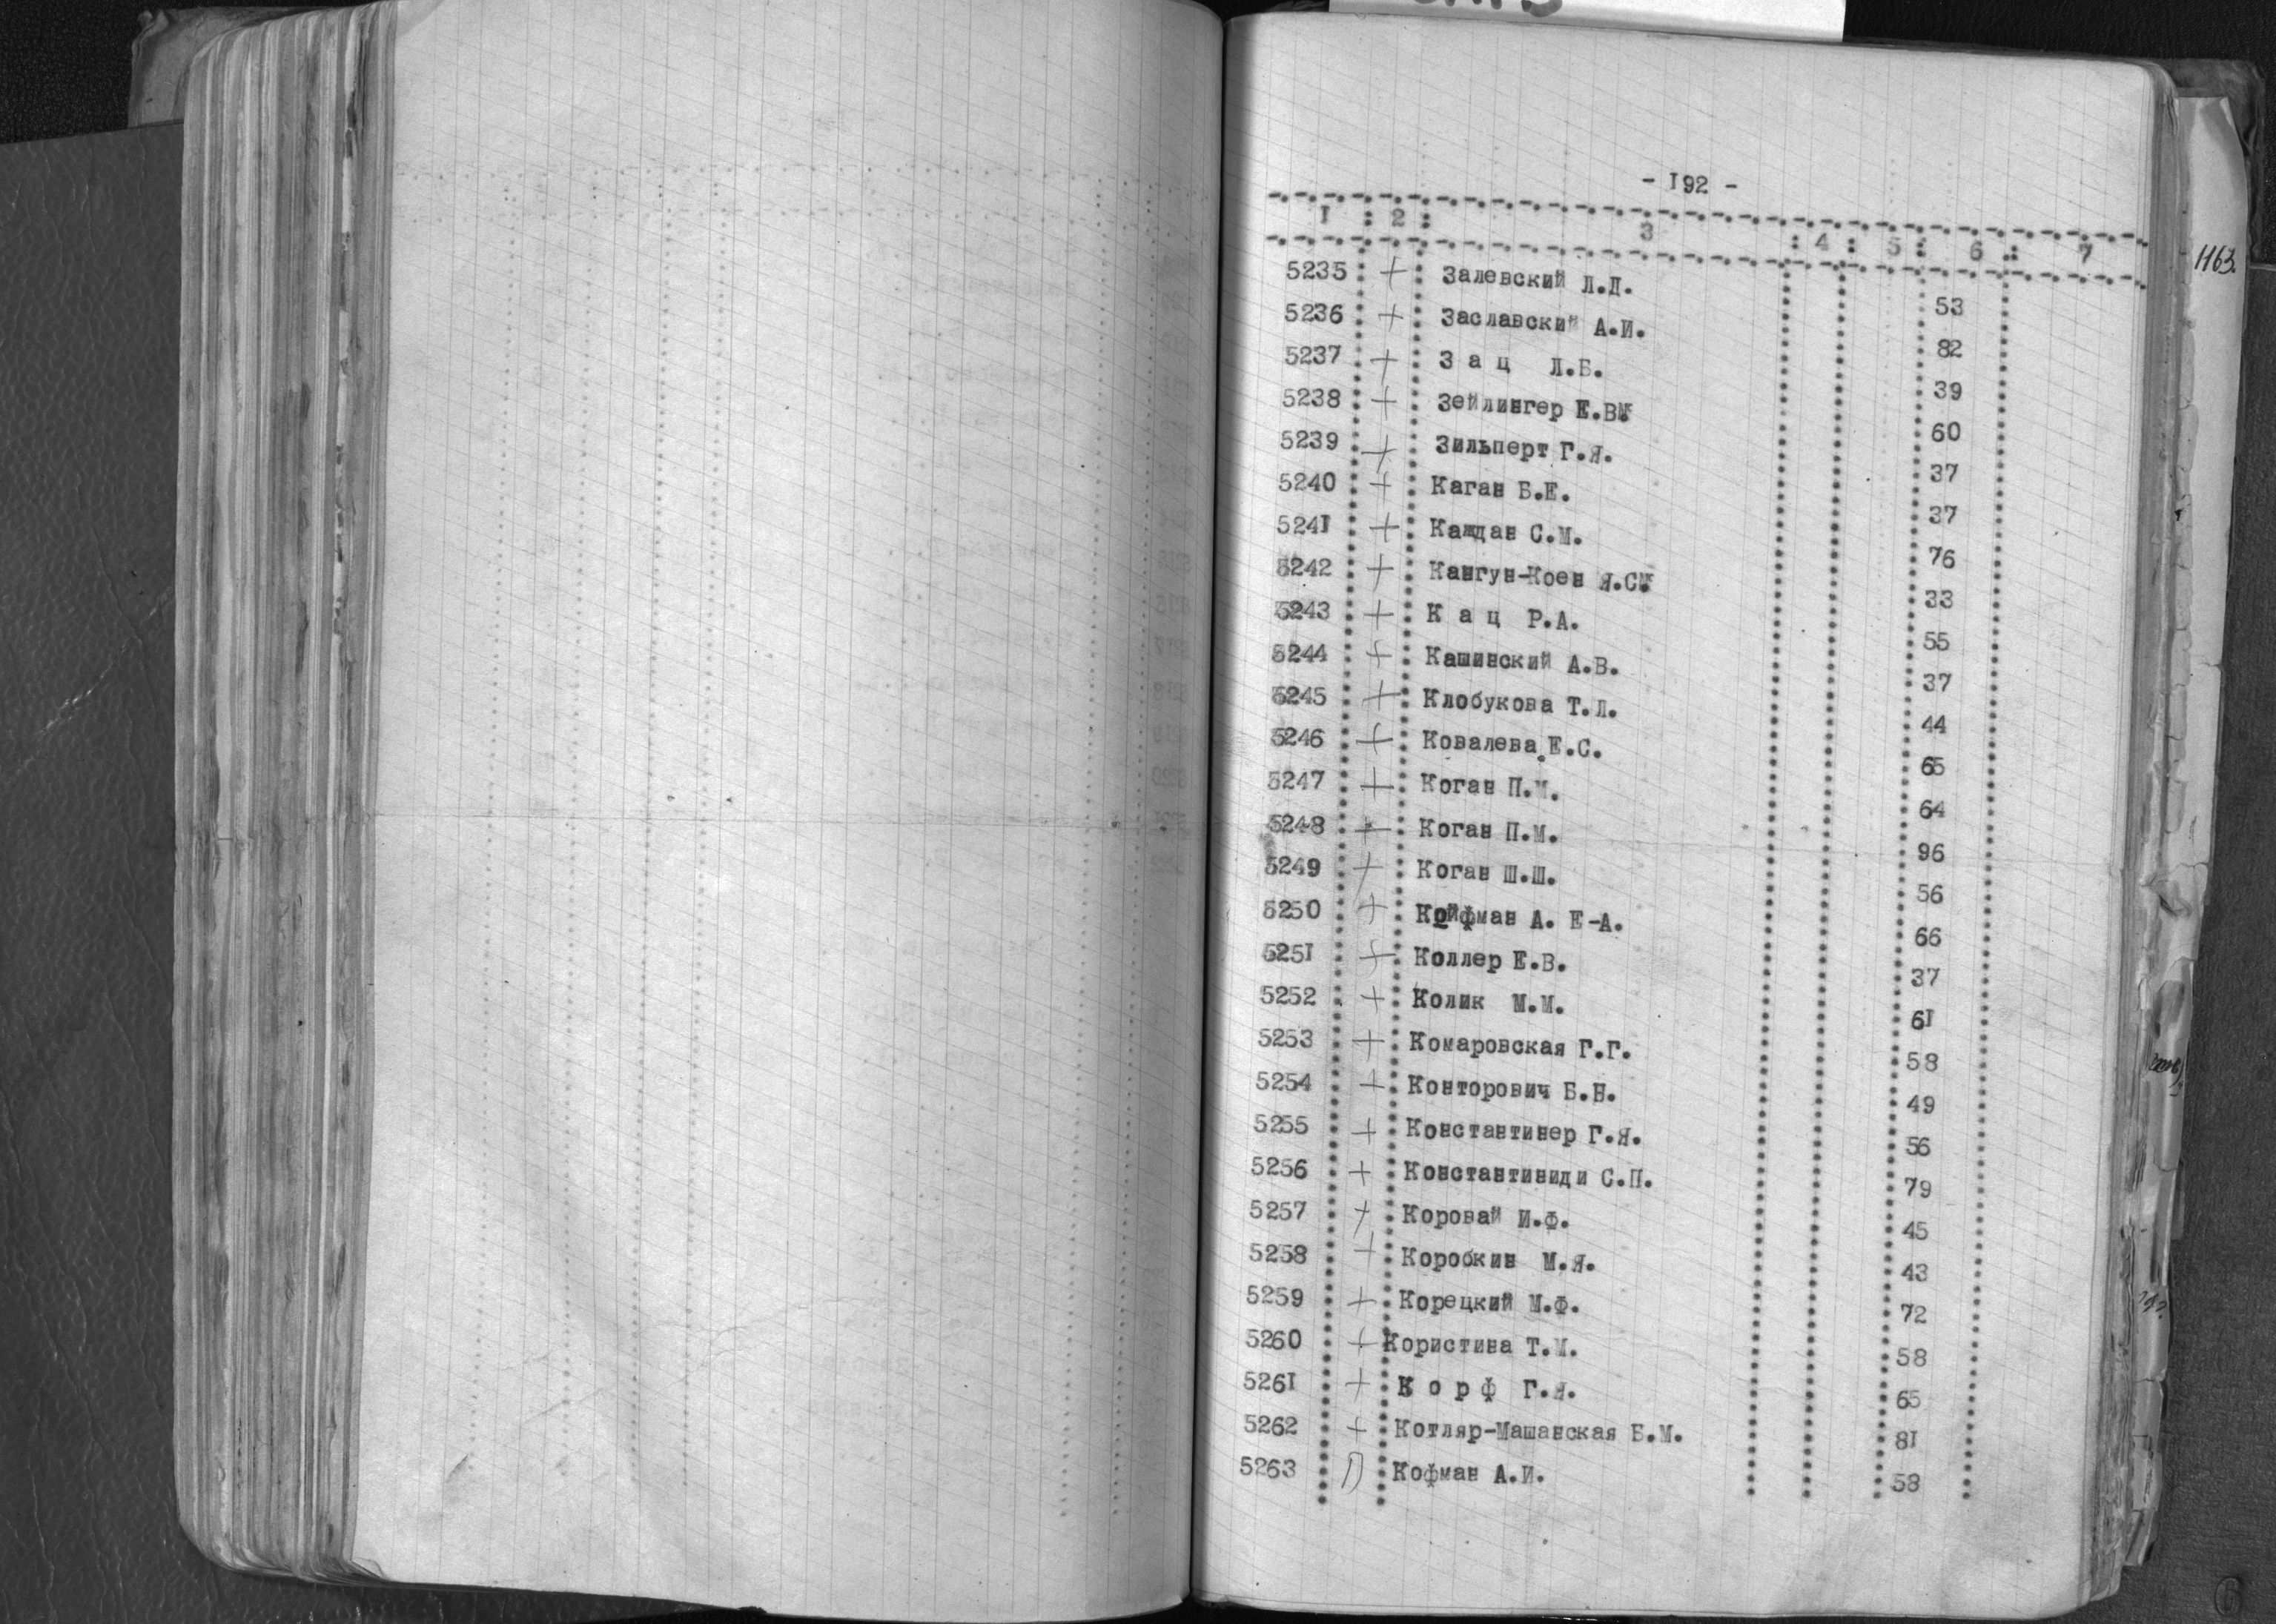 - I92 -
I : 2 : 3 : 4 : 5 : 6 : 7
1163.
5235 + Залевский Л.Д. 53
5236 + Заславский А.И. 82
5237 + З а ц Л.Б. 39
5238 + Зейлингер Е.ВМ. 60
5239 + Зильперт Г.Я. 37
5240 + Каган Б.Е. 37
524I + Каждан С.М. 76
5242 + Кангун-Коен Я.СМ. 33
5243 + К а ц Р.А. 55
5244 + Кашинский А.В. 37
5245 + Клобукова Т.Л. 44
5246 + Ковалева Е.С. 65
5247 + Коган П.М. 64
5248 + Коган П.М. 96
5249 + Коган Ш.Ш. 56
5250 + Койфман А. Е-А. 66
525I + Коллер Е.В. 37
5252 + Колик М.М. 6I
5253 + Комаровская Г.Г. 58
5254 + Конторович Б.Н. 49
5255 + Константинер Г.Я. 56
5256 + Константиниди С.П. 79
5257 + Коровай И.Ф. 45
5258 + Коробкин М.Я. 43
5259 + Корецкий М.Ф. 72
5260 + Користина Т.М. 58
526I + К о р ф Г.Я. 65
5262 + Котляр-Машанская Б.М. 8I
5263 Кофман А.И. 58